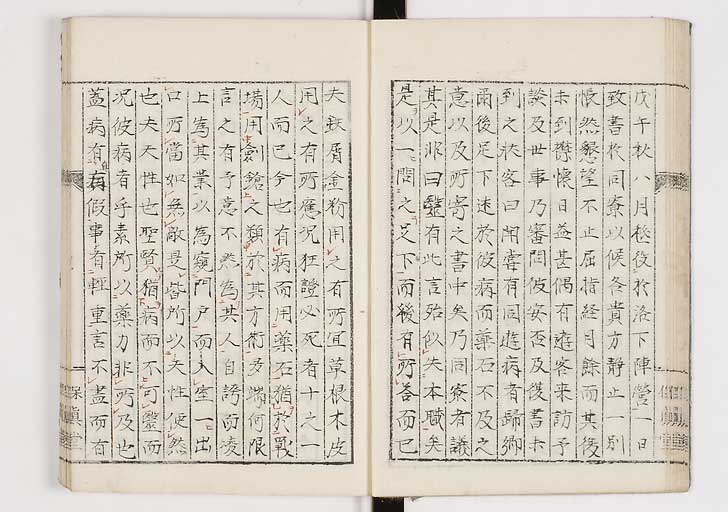 戊午秋八月極後於洛下陣營一日
致書於同寮以候各貴方靜止一別
悵然懇望不止屈指経月餘而其後
未到欝懷日益甚偶有遊客来訪予
談及世事乃審問彼安否及復書未
到之状客曰閒嘗有同遊病者歸郷
而後足下迷於彼病而藥石不及之
意以及所寄之書中矣乃同寮者議
其是非曰鑿有此言殆似失本職矣
是以一問之足下而後有所答而已
夫鉄屑金粉用之有所宜草根木皮
用之有所應况狂證必死者十之一
人而已今也有病而用藥石猶於戰
場用劍鎗之類於其方術多端何限
言之有予意不然為其人自誇而凌
上為其業以為窺門戶而入室一出
口所當如無敵是皆所以失性使然
也夫天性也聖賢猶病而不可鑿而
况彼病者乎素所以藥力非所及也
蓋病有真病假事有輕重言不盡而有
保真堂